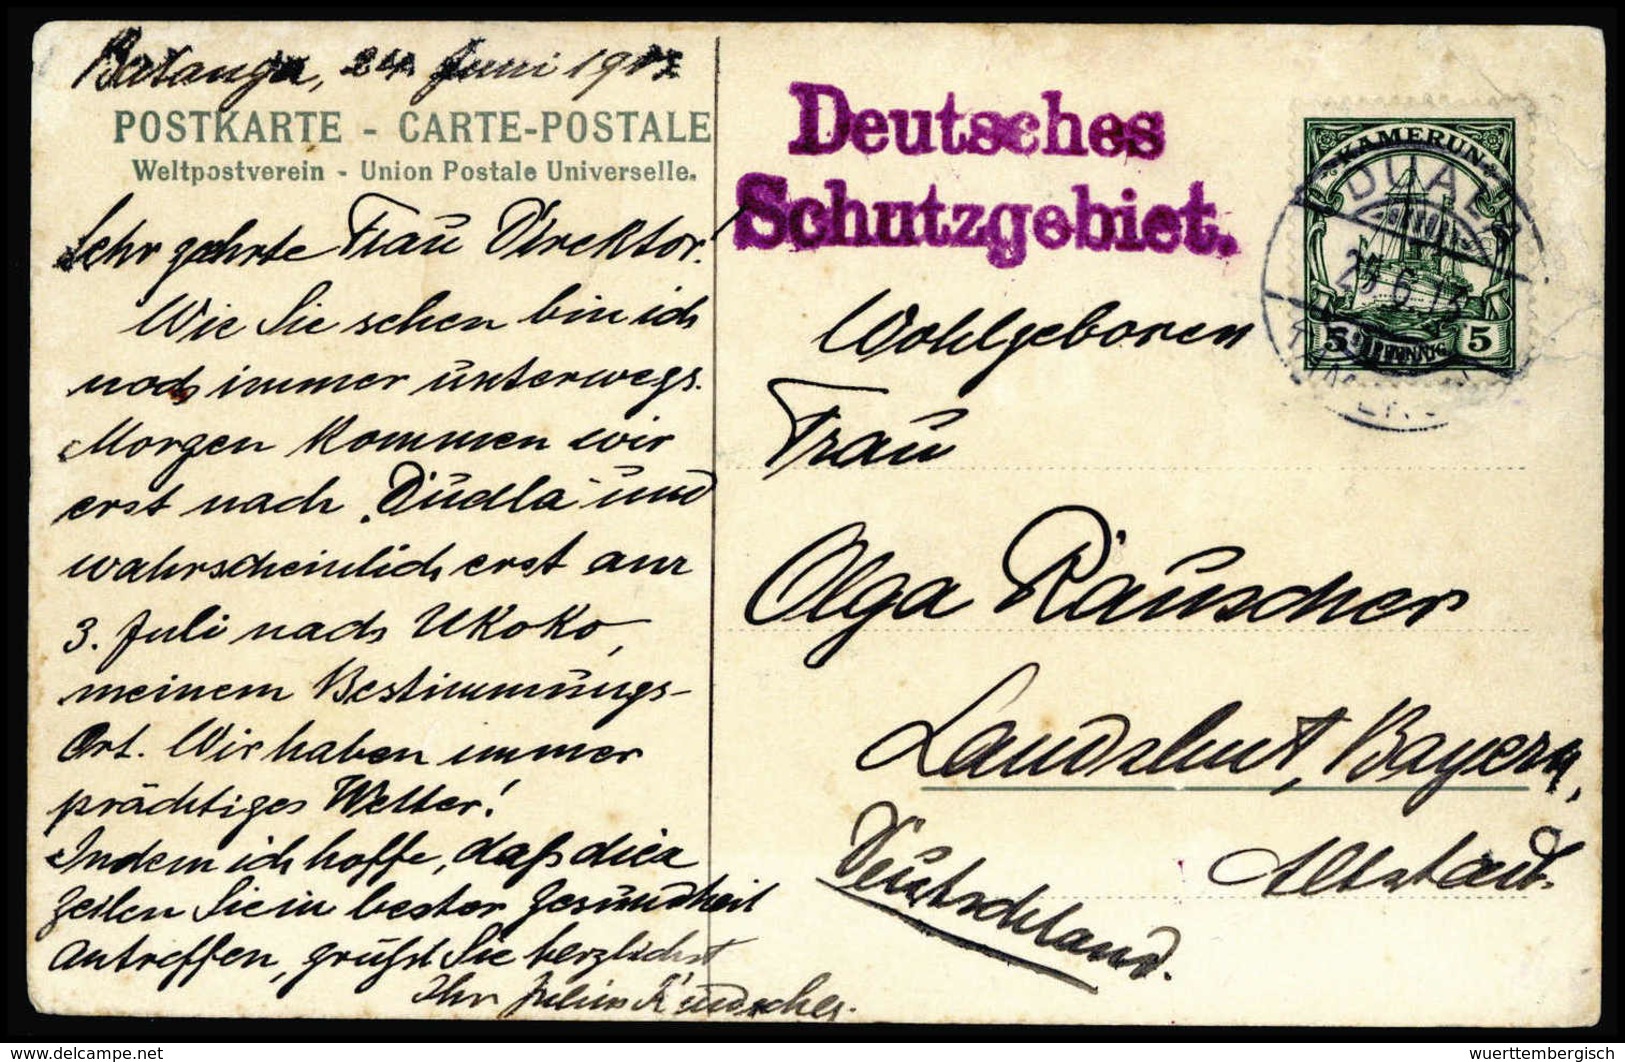 Batanga, 24. Juni 1913
POSTKARTE - CARTE-POSTALE
Weltpostverein - Union Postale Universelle.
Sehr geehrte Frau Direktor!
Wie Sie sehen bin ich
noch immer unterwegs.
Morgen kommen wir
erst nach "Duala" und
wahrscheinlich erst am
3. Juli nach Ukoko,
meinem Bestimmungs-
Ort. Wir haben immer
prächtiges Wetter!
Indem ich hoffe, daß diese
Zeilen Sie in bester Gesundheit
antreffen, grüßt Sie herzlichst
Ihr Julius
Deutsches
Schutzgebiet.
KAMERUN
DUALA
25 6 13
5 PFENNIG 5
Wohlgeboren
Frau
Olga Räuscher
Landshut, Bayern,
Altstadt
Deutschland.
wuerttembergisch